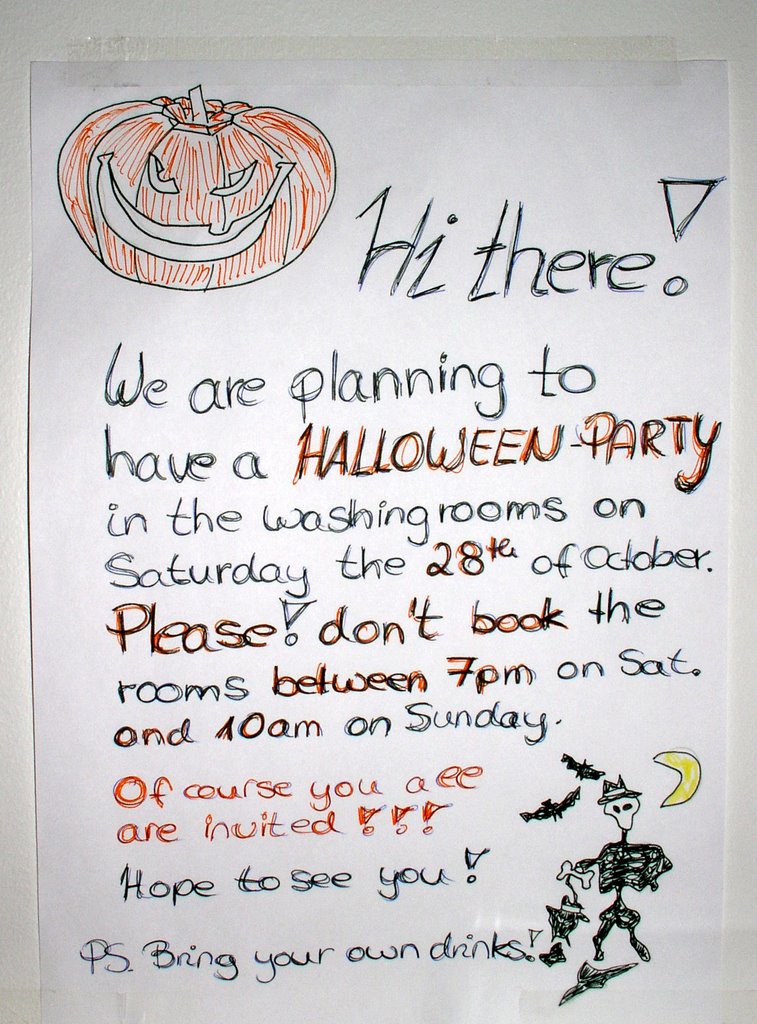 Hi there!
We are planning to
have a HALLOWEEN-PARTY
in the washingrooms on
Saturday the 28th of October.
Please! don't book the
rooms between 7pm on Sat.
and 10am on Sunday.
Of course you all
are invited !!!
Hope to see you!
PS. Bring your own drinks!